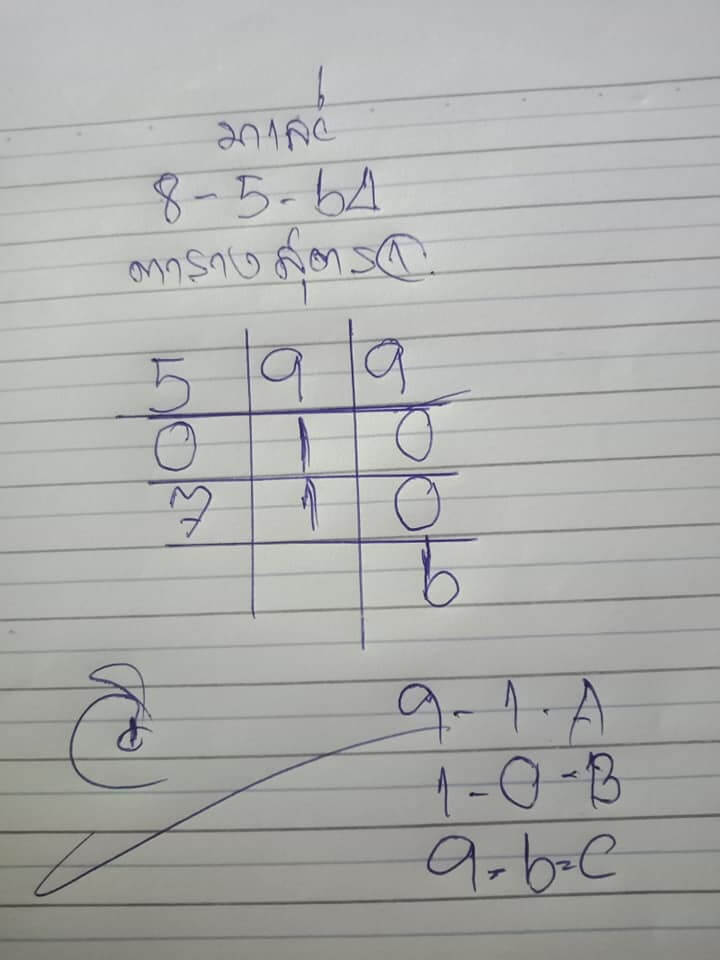 มาเลย์
8-5-64
ตารางสูตร①
5 9 9
0 1 0
7 1 0
6
9-1-A
1-0-B
9-6=C